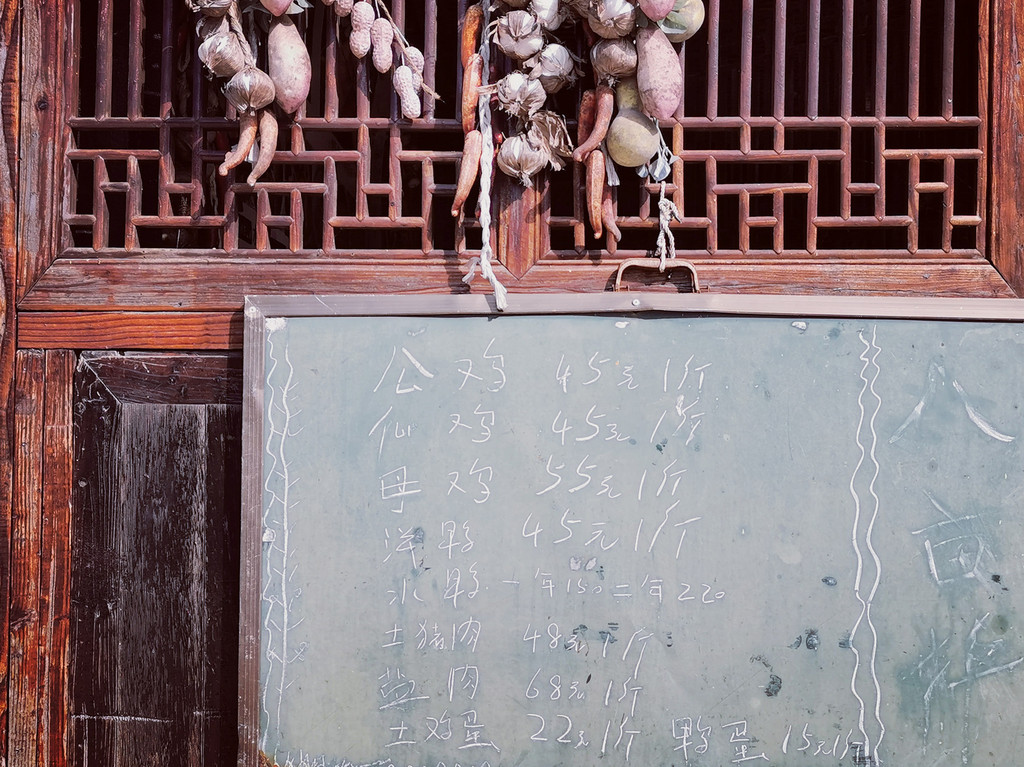 公鸡 45元1斤
仙鸡 45元1斤
母鸡 55元1斤
洋鸭 45元1斤
水鸭 一年150 二年220
土猪肉 48元1斤
盐肉 68元1斤
土鸡蛋 22元1斤 鸭蛋 15元1斤
八
百